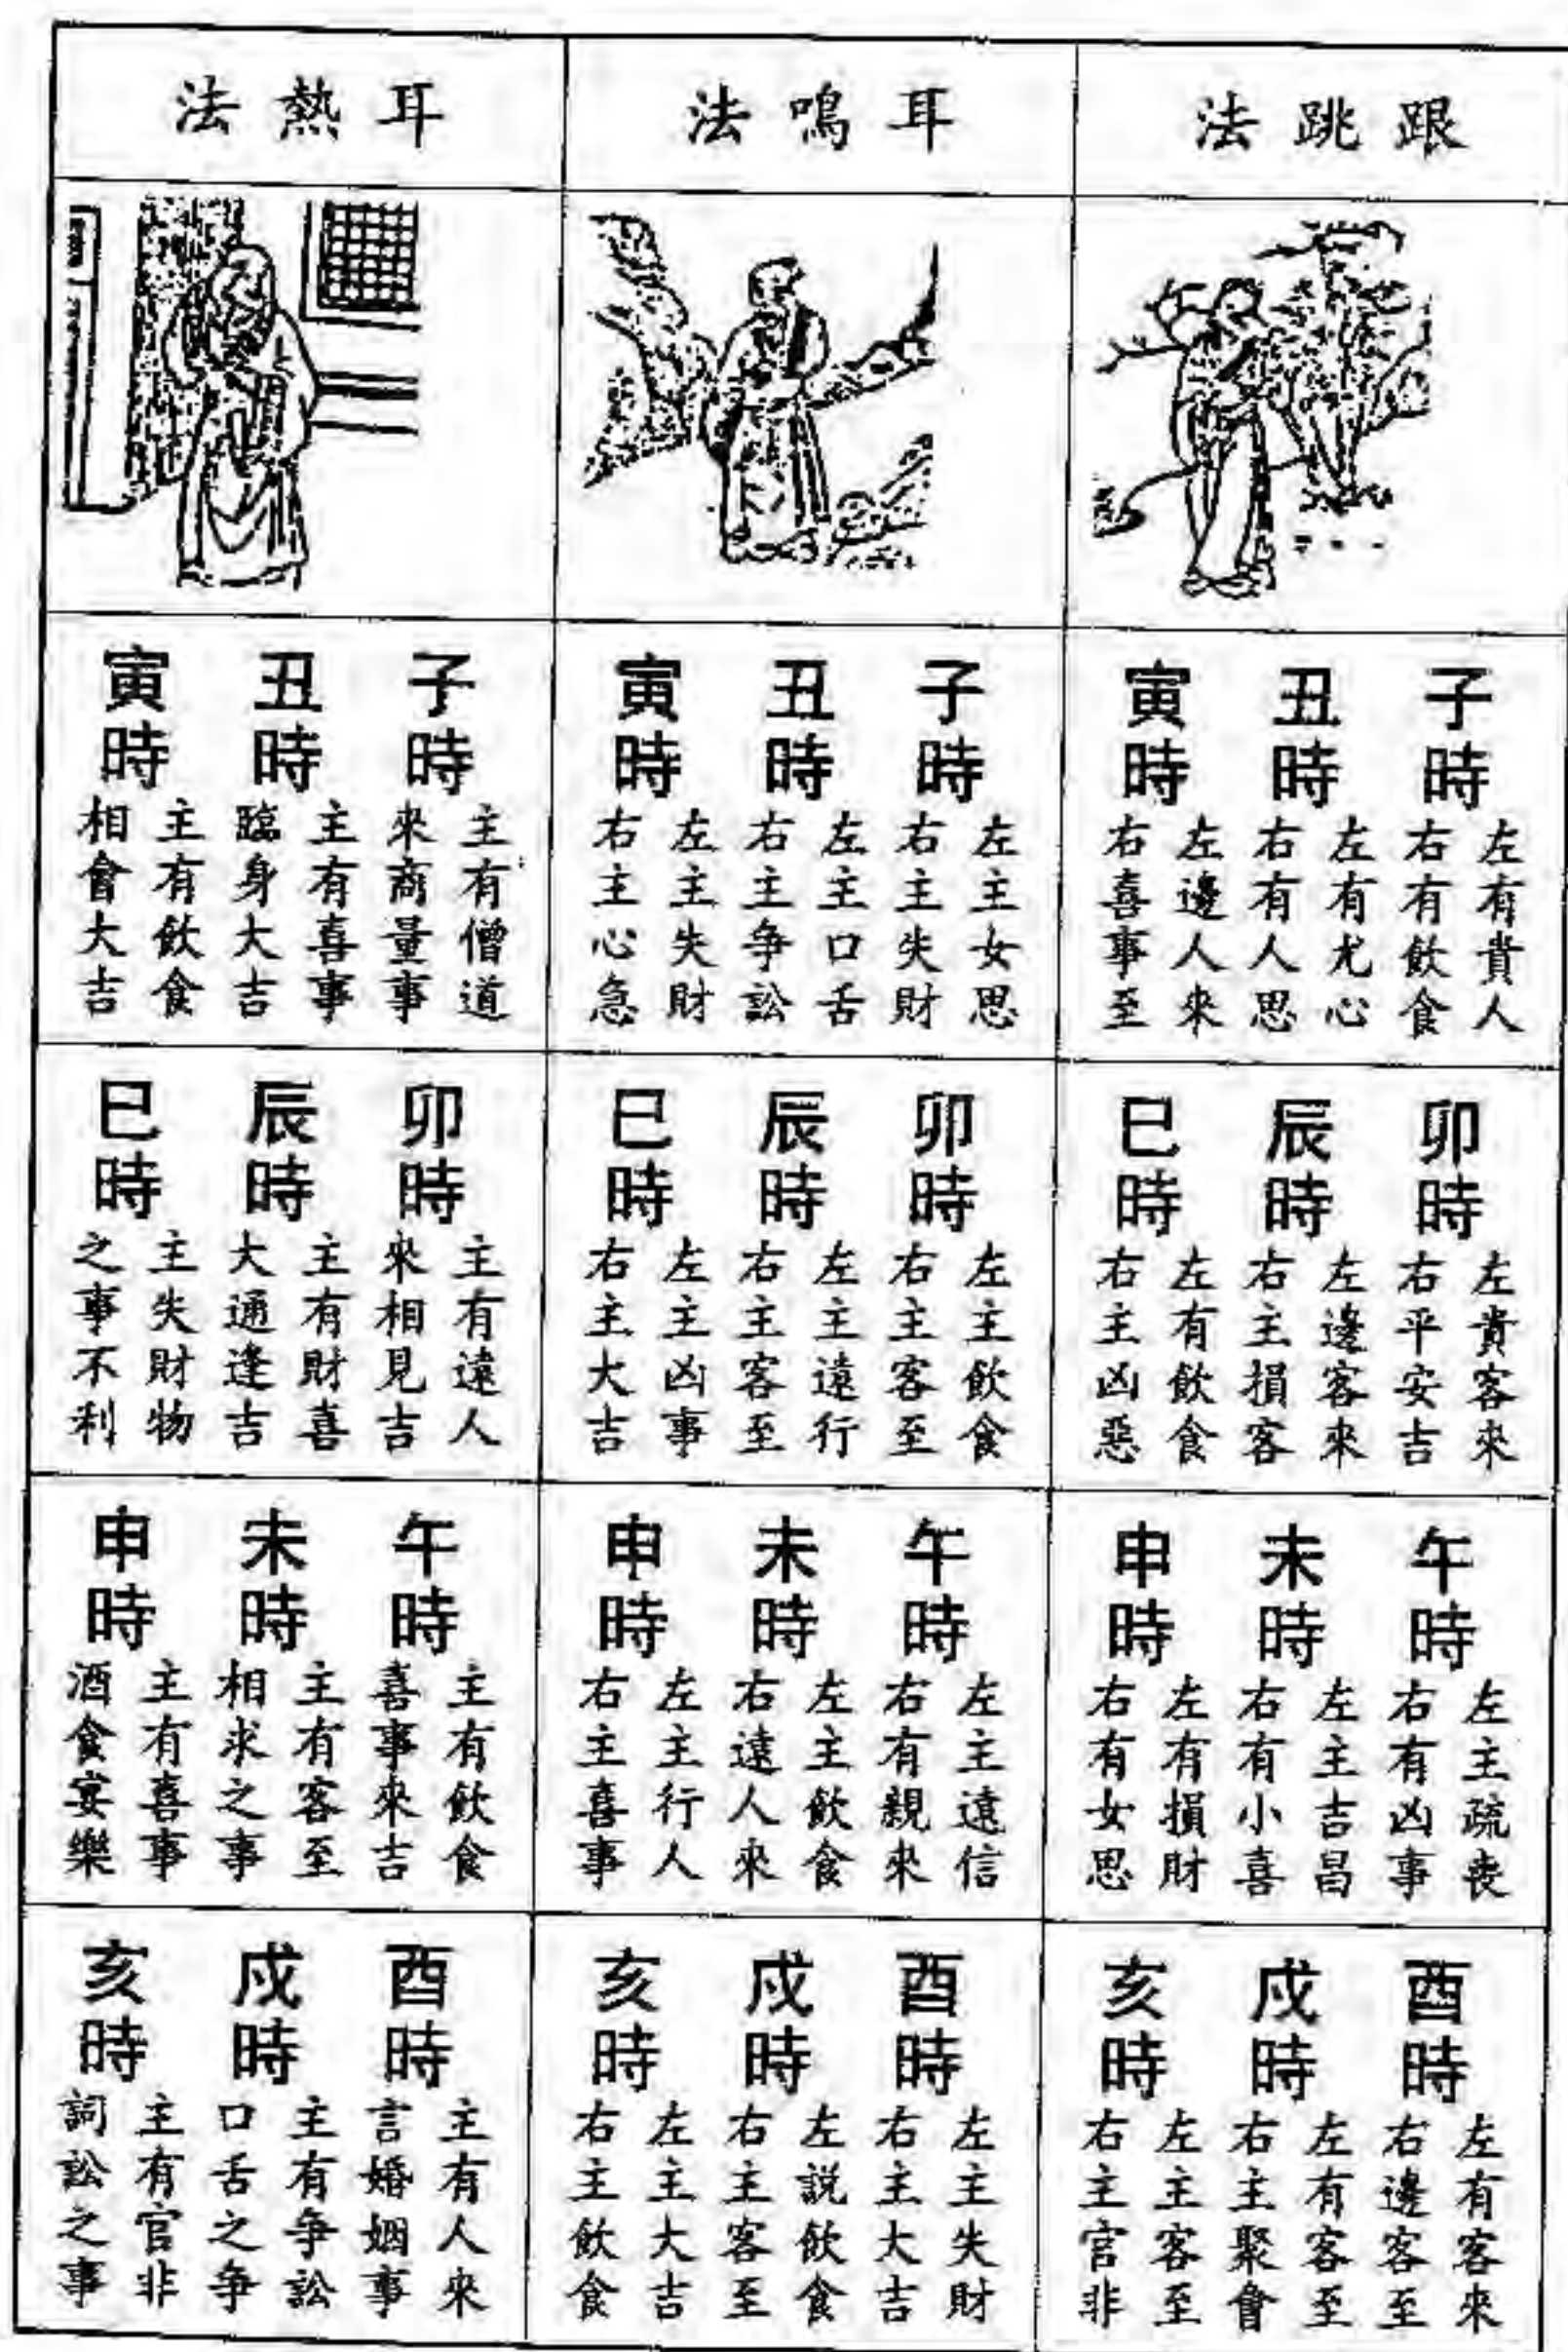 跟跳法
子時
左有貴人
右有飲食
丑時
左有尤心
右有人思
寅時
左邊人來
右喜事至
卯時
左貴客來
右平安吉
辰時
左邊客來
右主損客
巳時
左有飲食
右主凶惡
午時
左主疏喪
右有凶事
未時
左主吉昌
右有小喜
申時
左有損財
右有女思
酉時
左有客來
右邊客至
戌時
左有客至
右主聚會
亥時
左主客至
右主官非
耳鳴法
子時
左主女思
右主失財
丑時
左主口舌
右主争訟
寅時
左主失財
右主心急
卯時
左主飲食
右主客至
辰時
左主遠行
右主客至
巳時
左主凶事
右主大吉
午時
左主遠信
右有親來
未時
左主飲食
右遠人來
申時
左主行人
右主喜事
酉時
左主失財
右主大吉
戌時
左説飲食
右主客至
亥時
左主大吉
右主飲食
耳熱法
子時
主有僧道
來商量事
丑時
主有喜事
臨身大吉
寅時
主有飲食
相會大吉
卯時
主有遠人
來相見吉
辰時
主有財喜
大通逢吉
巳時
主失財物
之事不利
午時
主有飲食
喜事來吉
未時
主有客至
相求之事
申時
主有喜事
酒食宴樂
酉時
主有人來
言婚姻事
戌時
主有争訟
口舌之争
亥時
主有官非
詞訟之事